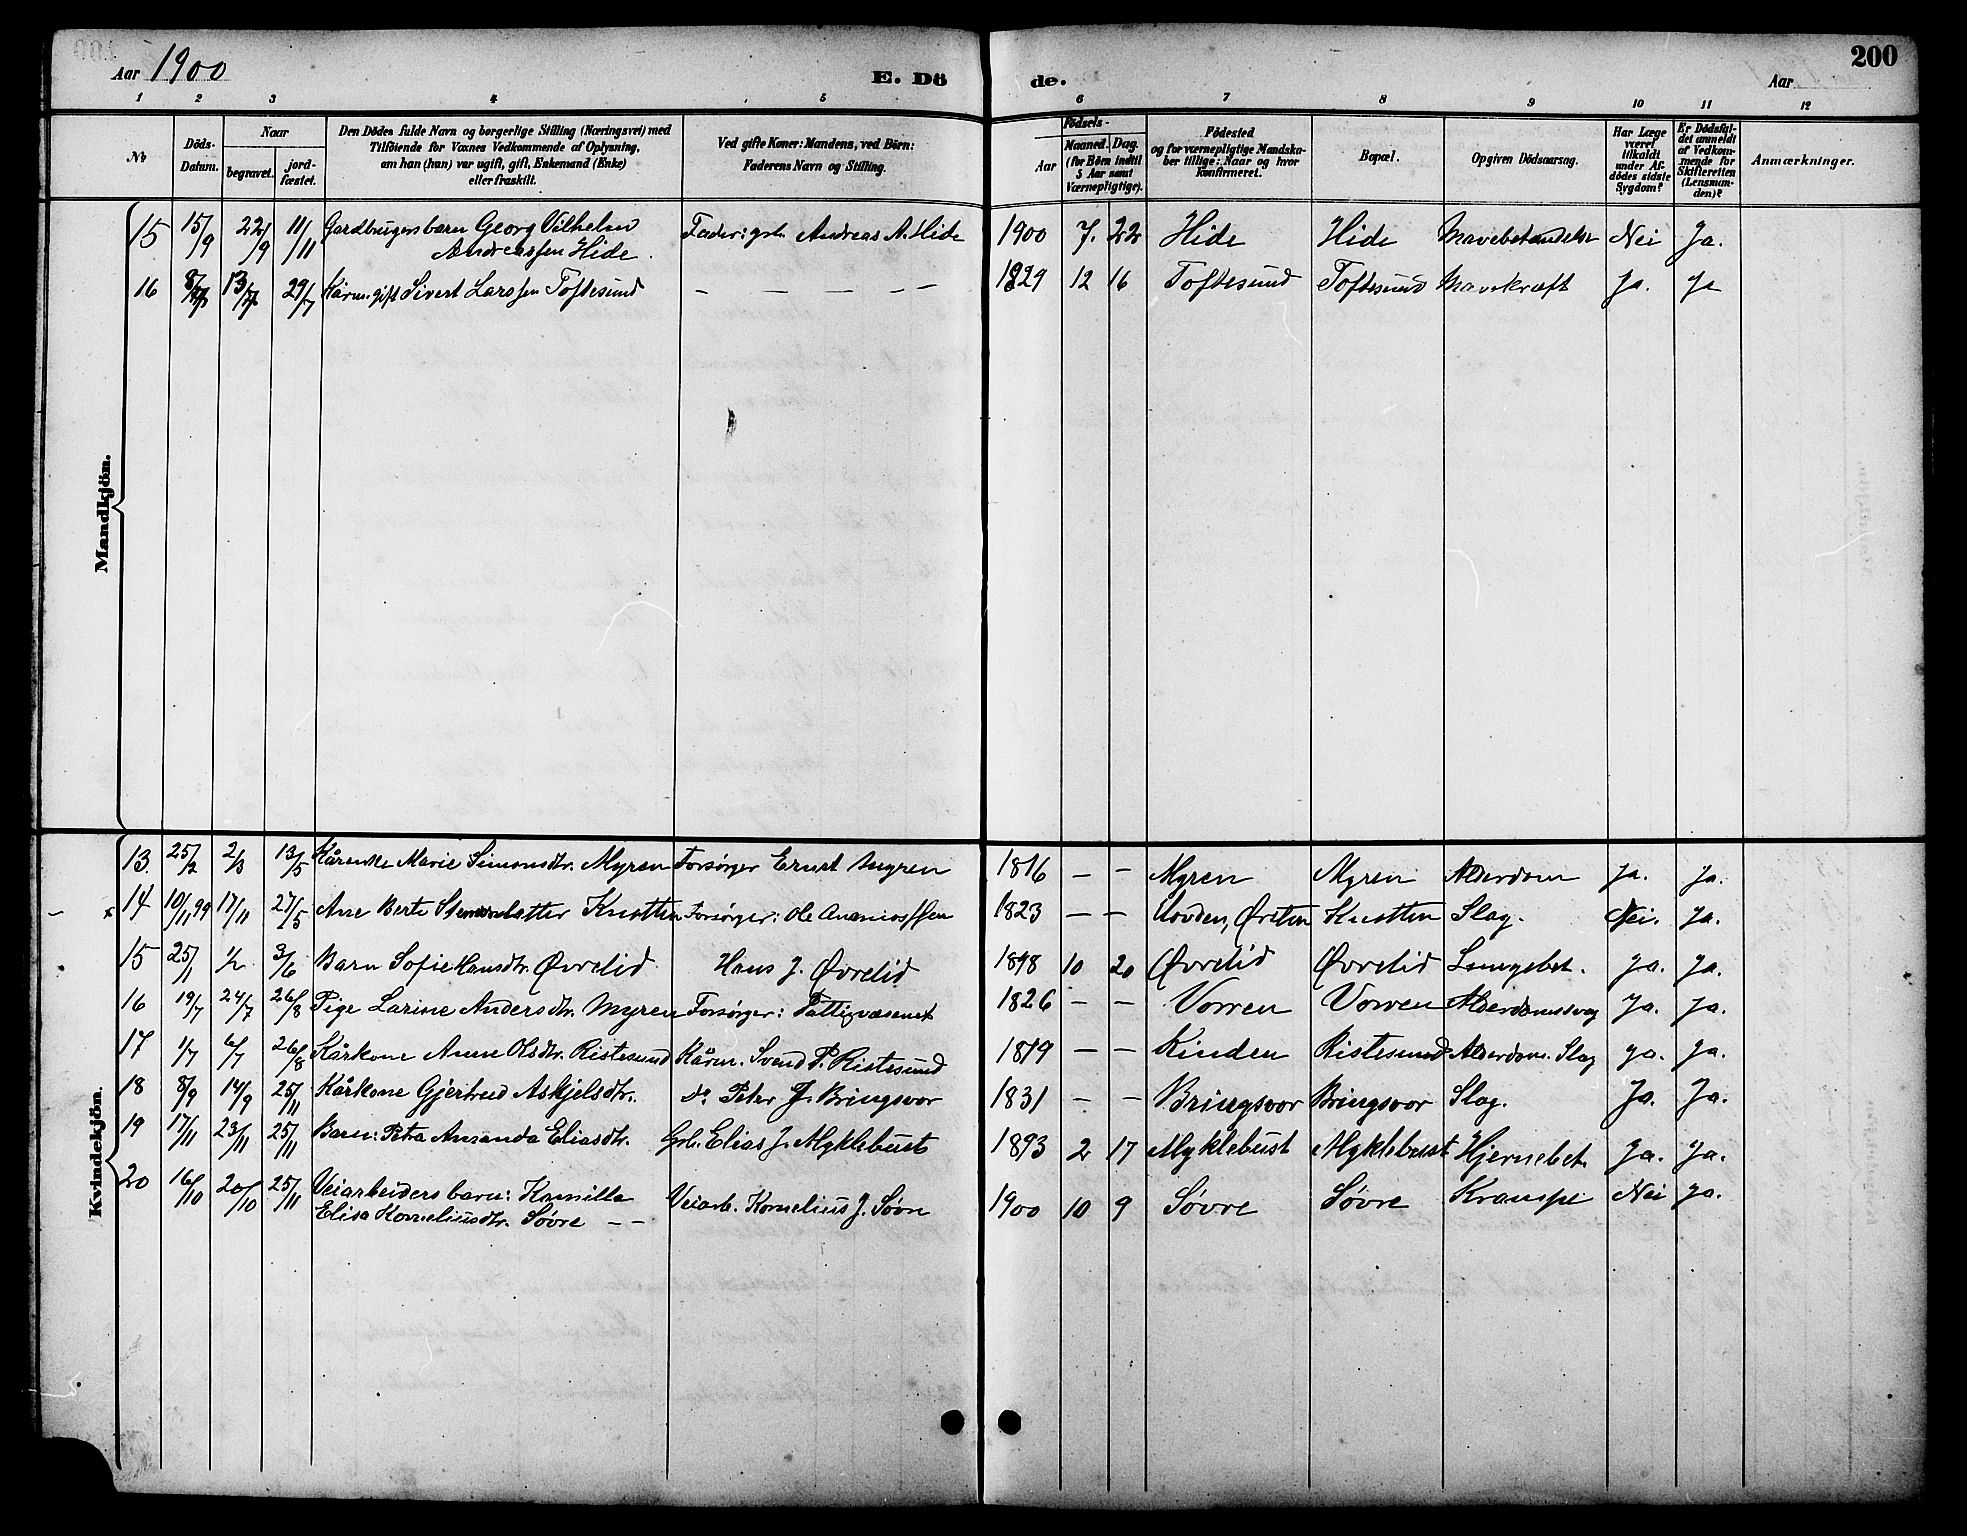 Aar 1900
E. Dö
de.
Aar
200
1 2 3 4 5 6 7 8 9 10 11 12
No
Döds-Datum.
Naar
begravet.
jord-fæstet.
Den Dödes fulde Navn og borgerlige Stilling (Næringsvei) med
Tilföiende for Voxnes Vedkommende af Oplysning,
om han (hun) var ugift, gift, Enkemand (Enke)
eller fraskilt.
Ved gifte Koner: Mandens, ved Börn:
Faderens Navn og Stilling.
Födsels-
Aar
Maaned. Dag.
(for Börn indtil
5 Aar samt
Værnepligtige).
Födested
og for værnepligtige Mandska-
ber tillige: Naar og hvor
konfirmeret.
Bopæl.
Opgiven Dödsaarsag.
Har Læge
været
tilkaldt
under Af-
dödes sidste
Sygdom?
Er Dödsfal-
det anmeldt
af Vedkom-
mende for
Skifteretten
(Lensman-
den)?
Anmærkninger.
Mandkjön.
15 15/9 22/9 11/11 Gardbrugersbarn Georg Vilhelm Fader: grb. Andreas A. Hide 1900 7. 22 Hide Hide Mavebetændelse Nei Ja.
Andreassen Hide.
16 8/7 13/7 29/7 Kårm. gift Sivert Larssen Toftesund — — — — 1829 12 16 Toftesund Toftesund Mavekræft Ja. Ja
Kvindekjön.
13. 25/2 2/3 13/5 Kårenke Marie Simonsdtr. Myren Forsørger Ernst Myren 1816 — — Myren Myren Alderdom Ja. Ja.
14 10/11 99 17/11 27/5 Ane Berte Knotten Forsørger: Ole Ananiassen 1823 — — Hovden, Ørsten Knotten Slag. Nei. Ja.
15 25/1 1/2 3/6 Barn Sofie Hansdtr. Øvrelid Hans J. Øvrelid 1898 10 20 Øvrelid Øvrelid Lungebet. Ja. Ja.
16 19/7 24/7 26/8 Pige Larine Andersdtr. Myren Forsørger: Fattigvæsenet 1826 — — Vorren Vorren Alderdomssvag Ja. Ja.
17 1/7 6/7 26/8 Kårkone Anne Olsdtr. Ristesund Kårm. Svend P. Ristesund 1819 — — Kinden Ristesund Alderdom. Slag Ja. Ja.
18 8/9 14/9 25/11 Kårkone Gjertrud Askjelsdtr. Do. Peter J. Bringsvor 1831 — — Bringsvor Bringsvor Slag. Ja. Ja.
19 17/11 23/11 25/11 Barn: Petra Amanda Eliasdtr. Grb. Elias J. Myklebust 1893 2 17 Myklebust Myklebust Hjernebet. Ja. Ja.
20 16/10 20/10 25/11 Veiarbeiders barn: Kamilla Veiarb. Kornelius J. Søvre 1900 10 9 Søvre Søvre Krampe Nei Ja.
Elisa Korneliusdtr. Søvre — —